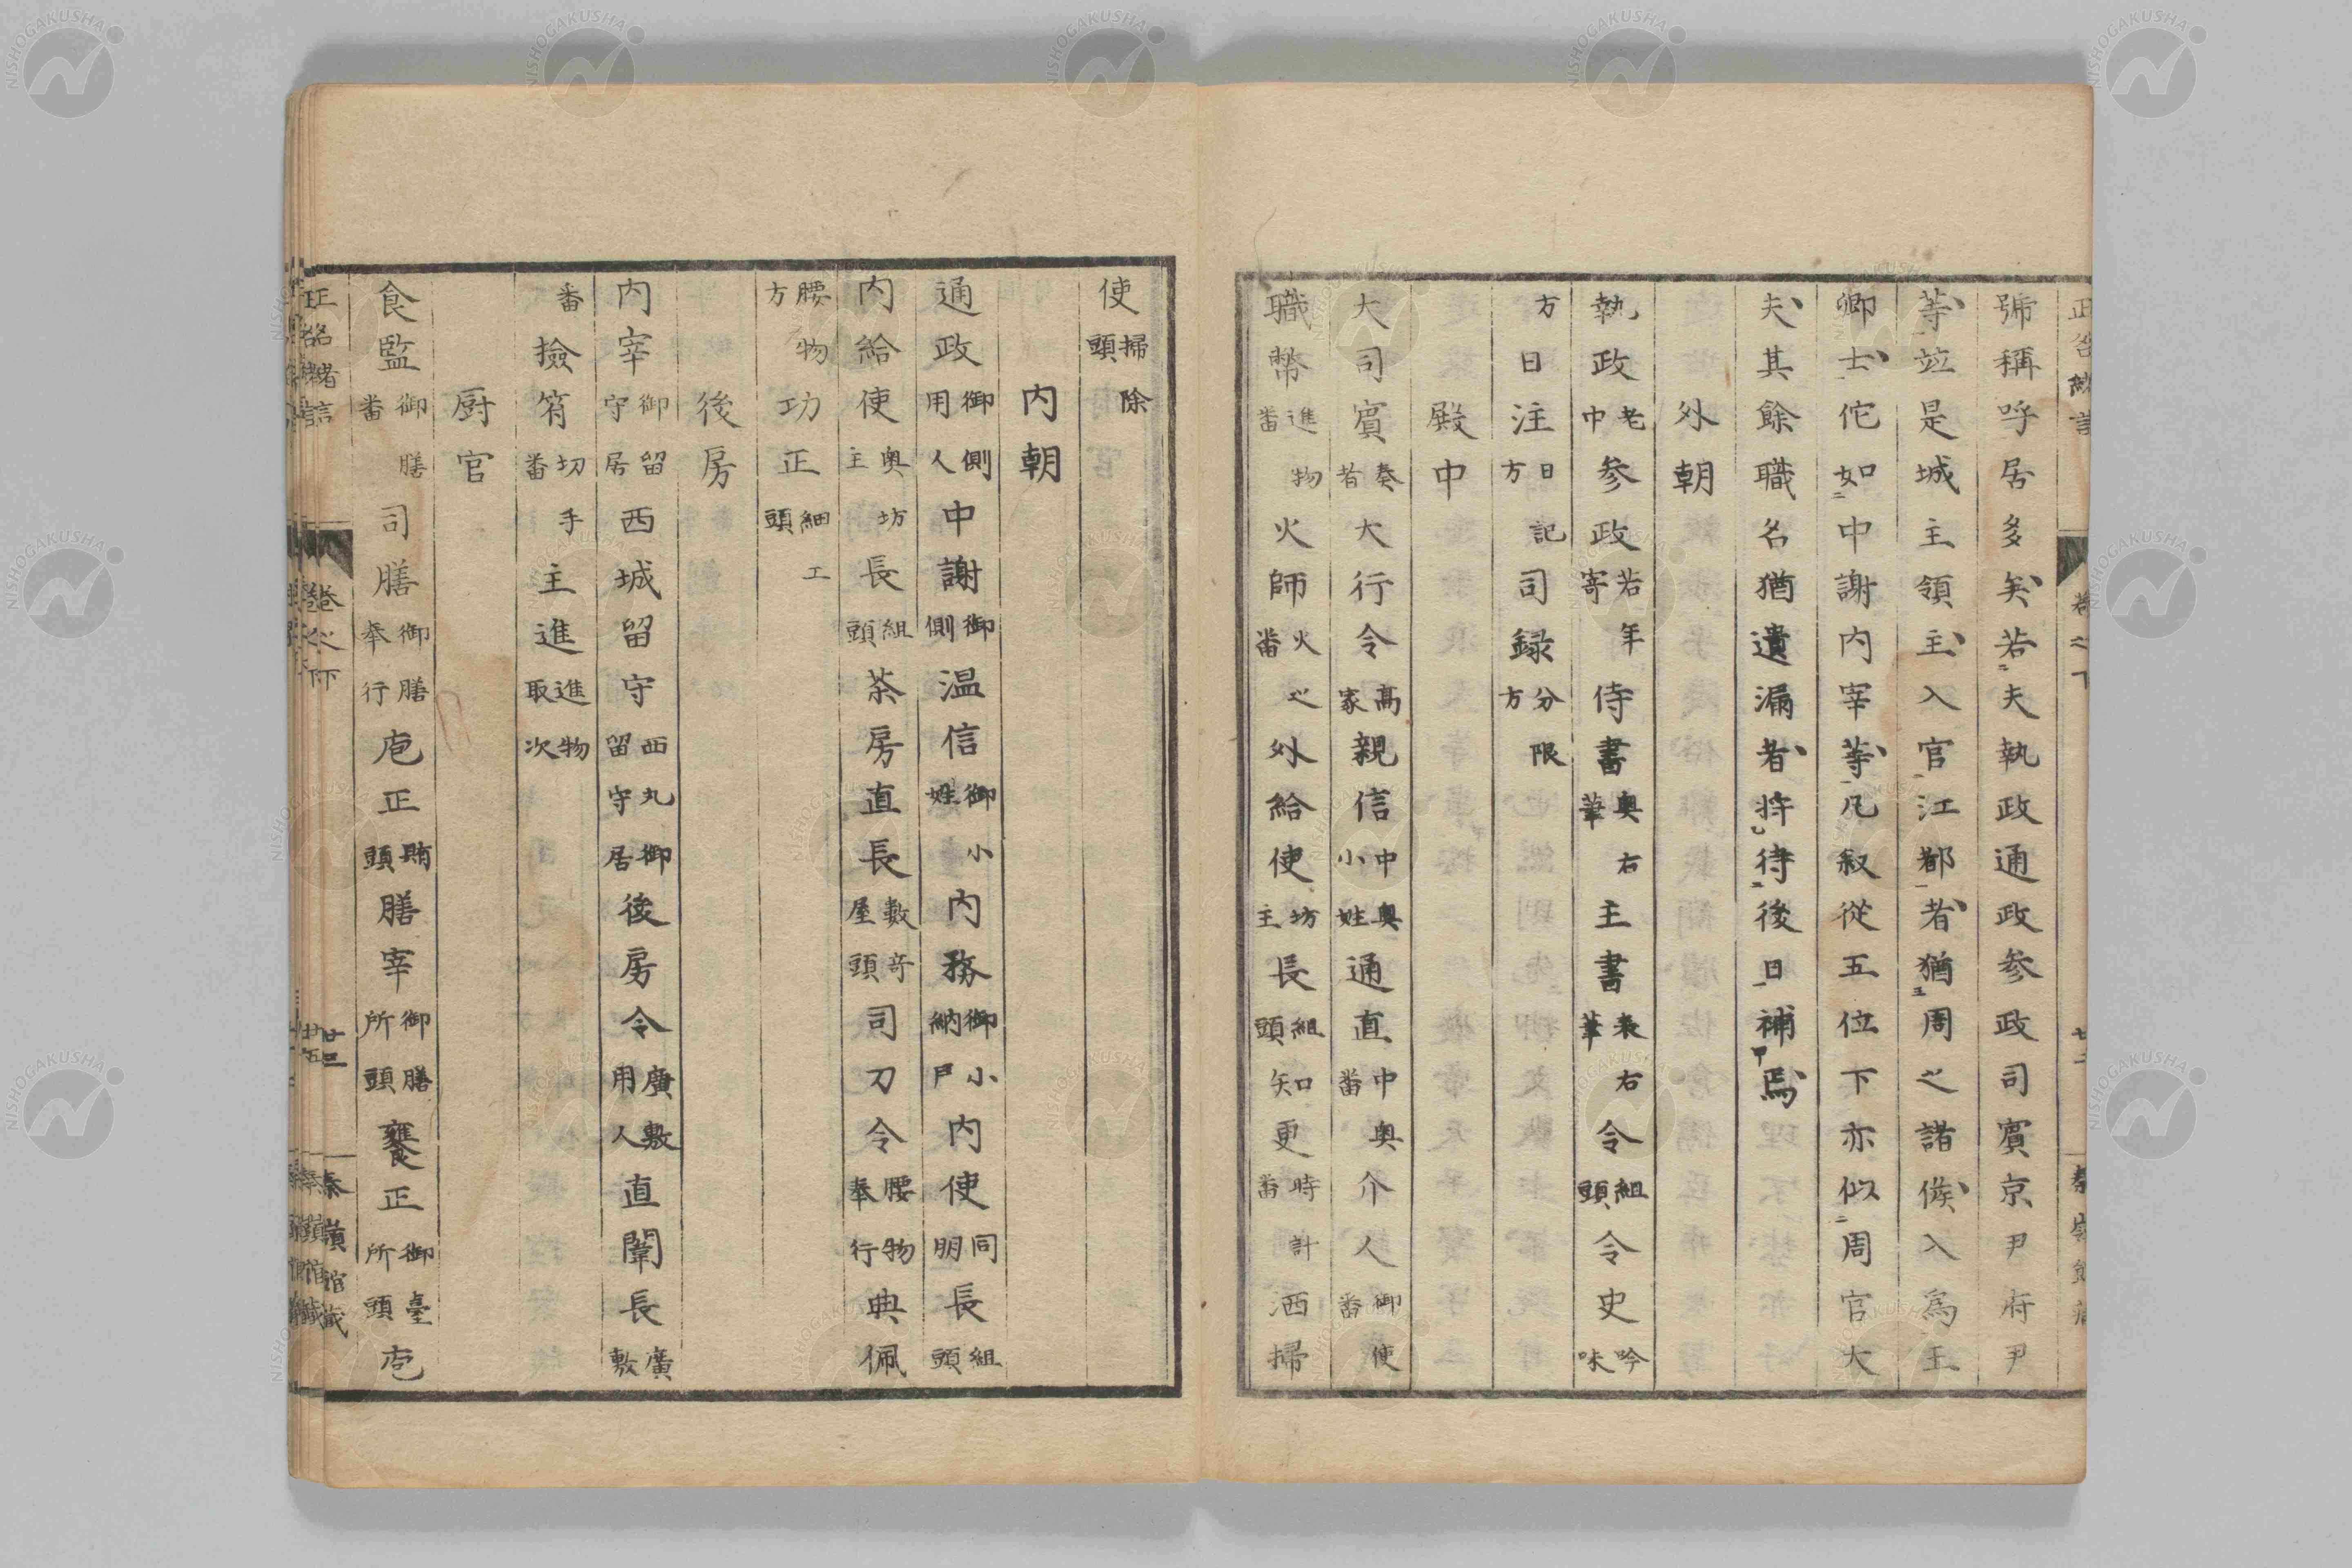 正名緒言 卷之下
號稱呼居多矣若夫執政通政参政司賓京尹府尹
等竝是城主領主入官江都者猶周之諸侯入為王
卿士佗如中謝内宰等凡叙從五位下亦似周官大
夫其餘職名猶遺漏者将待後日補焉
外朝
執政老中参政若年寄侍書奥右筆主書表右筆令組頭令史吟味
方日注日記方司録分限方
殿中
大司賓奏者大行令高家親信中奥小姓通直中奥番介人御使番
職幣進物番火師火之番外給使坊主長組頭知更時計番洒掃
使掃除頭
内朝
通政御側用人中謝御側温信御小姓内務御小納戸内使同朋長組頭
内給使奥坊主長組頭茶房直長數寄屋頭司刀令腰物奉行典佩
腰物方功正細工頭
後房
内宰御留守居西城留守西丸御留守居後房令廣敷用人直闈長廣敷
番撿符切手番主進進物取次
厨官
食監御膳番司膳御膳奉行庖正賄頭膳宰御膳所頭饔正御臺所頭庖
正名緒言 卷之下
NISHOGAKUSHA